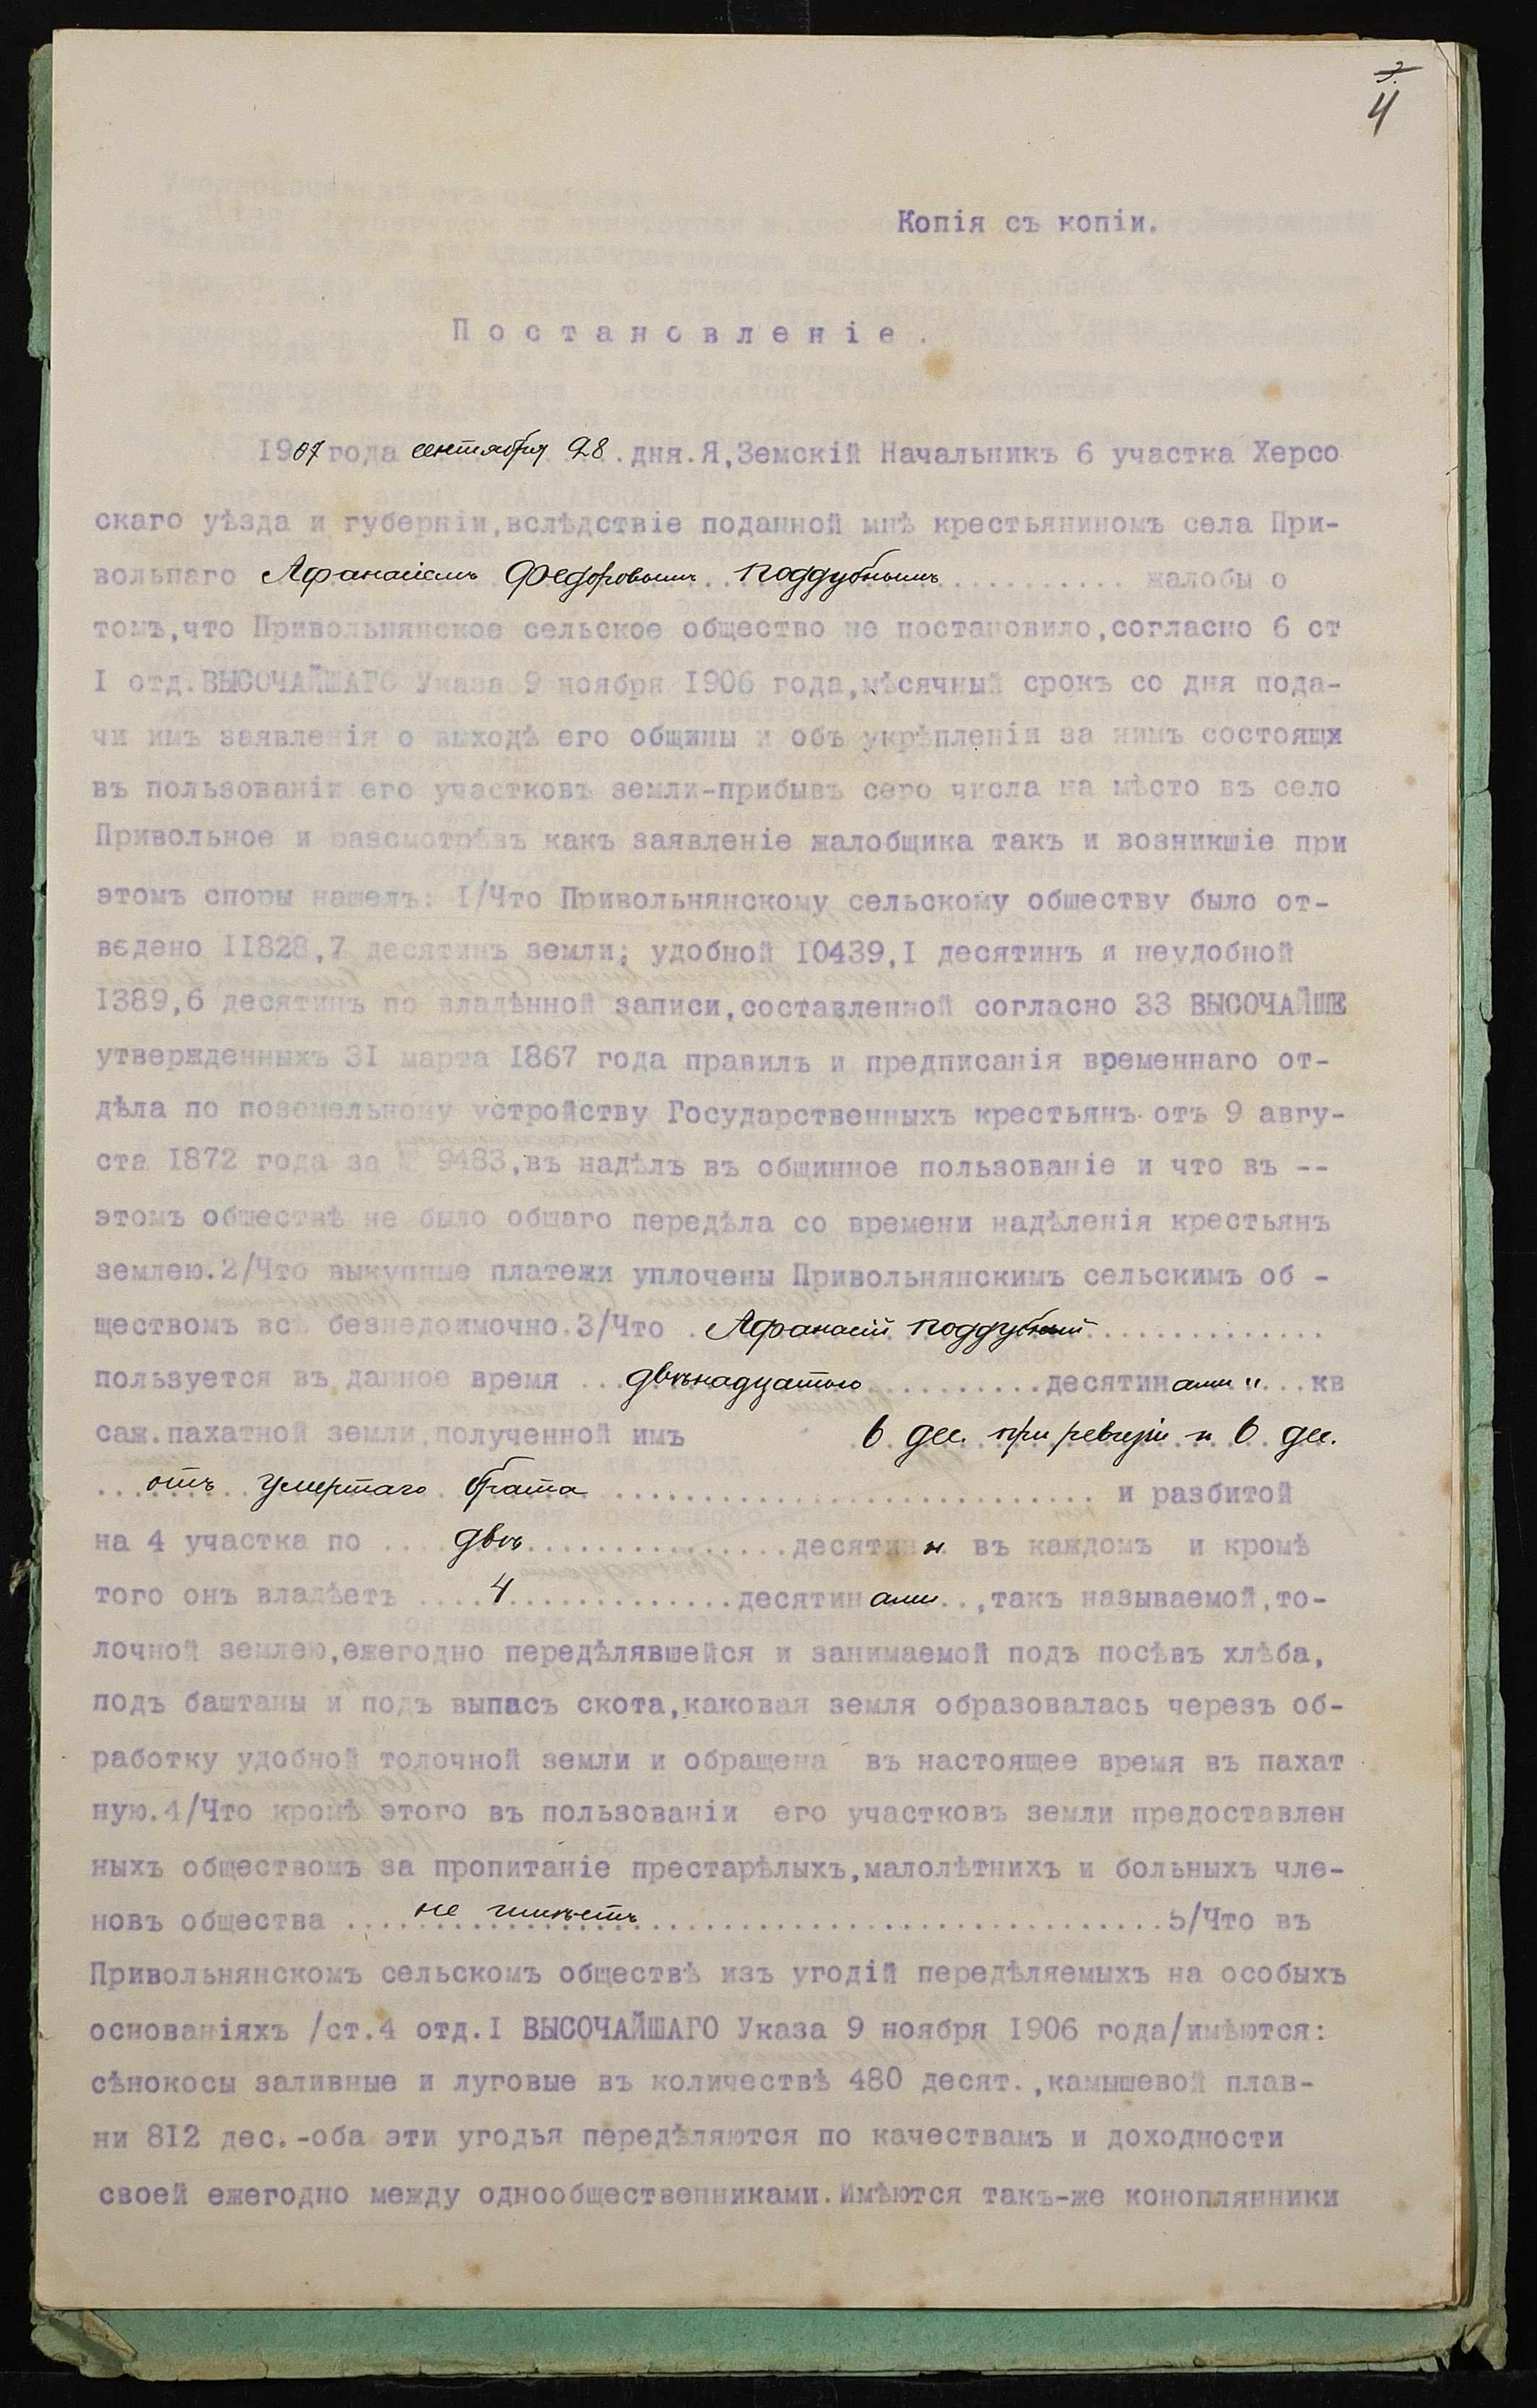 3.
4
Копія съ копіи.
Постановленіе.
1907 года сентября 28 . дня. Я, Земскій Начальникъ 6 участка Херсо
скаго уѣзда и губерніи, вслѣдствіе поданной мнѣ крестьяниномъ села При-
вольнаго Афанасіемъ Федоровымъ Поддубнымъ ............ жалобы о
томъ, что Привольнянское сельское общество не постановило, согласно 6 ст
I отд. ВЫСОЧАЙШАГО Указа 9 ноября 1906 года, мѣсячный срокъ со дня пода-
чи имъ заявленія о выходѣ его общины и объ укрѣпленіи за нимъ состоящи
въ пользованіи его участковъ земли-прибывъ сего числа на мѣсто въ село
Привольное и разсмотрѣвъ какъ заявленіе жалобщика такъ и возникшіе при
этомъ споры нашелъ: I/Что Привольнянскому сельскому обществу было от-
ведено 11828,7 десятинъ земли; удобной 10439,1 десятинъ и неудобной
1389,6 десятинъ по владѣнной записи, составленной согласно 33 ВЫСОЧАЙШЕ
утвержденныхъ 31 марта 1867 года правилъ и предписанія временнаго от-
дѣла по поземельному устройству Государственныхъ крестьянъ отъ 9 авгу-
ста 1872 года за № 9483, въ надѣлъ въ общинное пользованіе и что въ --
этомъ обществѣ не было общаго передѣла со времени надѣленія крестьянъ
землею. 2/Что выкупные платежи уплочены Привольнянскимъ сельскимъ об -
ществомъ всѣ безнедоимочно. 3/Что . Афанасій Поддубный ..............
пользуется въ данное время ... двѣнадцатью .......... десятинами " ... кв
саж. пахатной земли, полученной имъ 6 дес. при ревизіи и 6 дес.
отъ умершаго брата ............................ и разбитой
на 4 участка по .... двѣ ............... десятины въ каждомъ и кромѣ
того онъ владѣетъ .... 4 .............. десятинами .., такъ называемой, то-
лочной землею, ежегодно передѣлявшейся и занимаемой подъ посѣвъ хлѣба,
подъ баштаны и подъ выпасъ скота, каковая земля образовалась черезъ об-
работку удобной толочной земли и обращена въ настоящее время въ пахат
ную. 4/Что кромѣ этого въ пользованіи его участковъ земли предоставлен
ныхъ обществомъ за пропитаніе престарѣлыхъ, малолѣтнихъ и больныхъ чле-
новъ общества .... не имѣетъ .................................. 5/Что въ
Привольнянскомъ сельскомъ обществѣ изъ угодій передѣляемыхъ на особыхъ
основаніяхъ /ст. 4 отд. I ВЫСОЧАЙШАГО Указа 9 ноября 1906 года/имѣются:
сѣнокосы заливные и луговые въ количествѣ 480 десят., камышевой плав-
ни 812 дес. -оба эти угодья передѣляются по качествамъ и доходности
своей ежегодно между однообщественниками. Имѣются такъ-же коноплянники